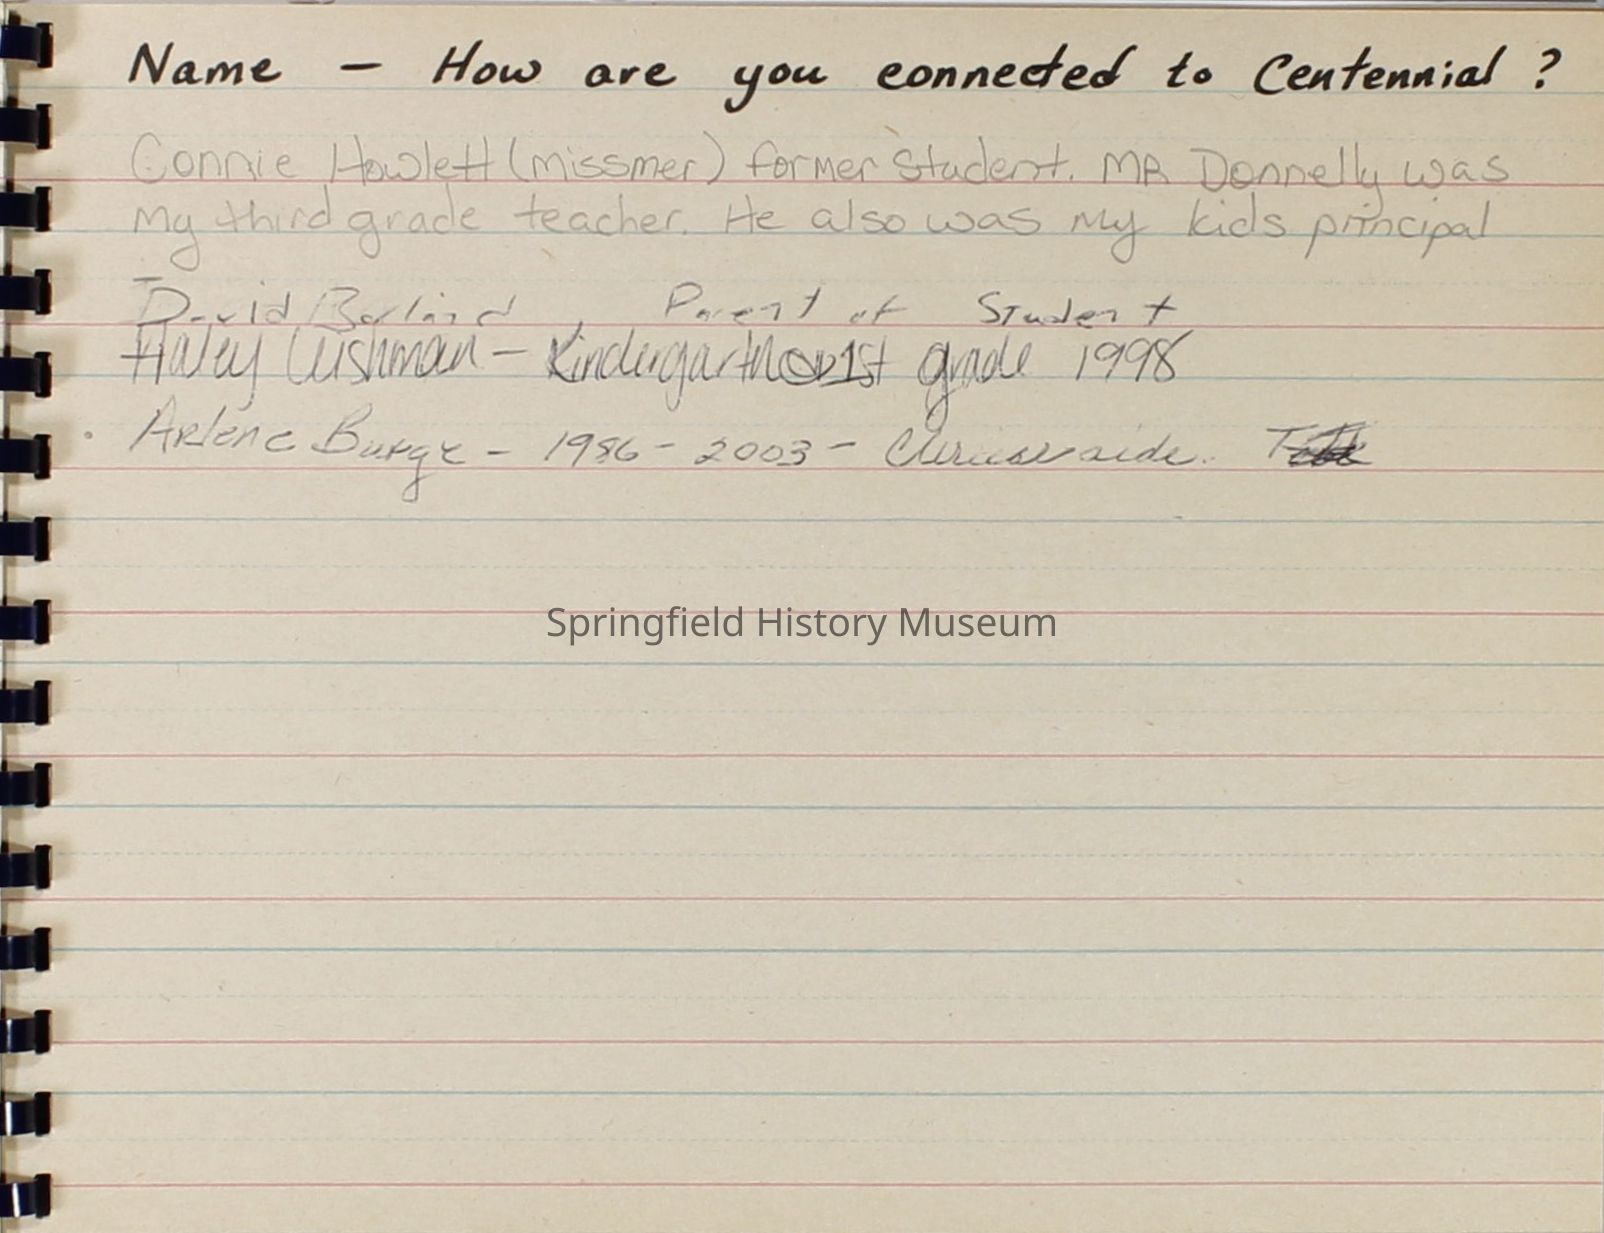 Name - How are you connected to Centennial ?
Connie Howlett (missmer) former student. MR Donnelly was
my third grade teacher. He also was my kids principal
David Borland Parent of Student
Haley Cushman - Kindergarten 1st grade 1998
Arlene Burge - 1986 - 2003 - Clerical aide.
Springfield History Museum